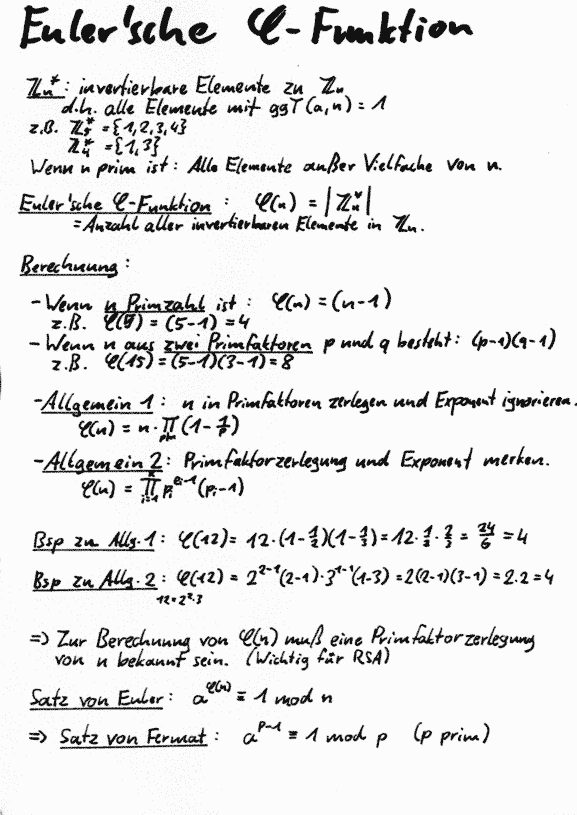 Euler'sche φ-Funktion
ℤₙ*: invertierbare Elemente zu ℤₙ
d.h. alle Elemente mit ggT(a,n) = 1
z.B. ℤ₅* = {1,2,3,4}
ℤ₄* = {1,3}
Wenn n prim ist: Alle Elemente außer Vielfache von n.
Euler'sche φ-Funktion: φ(n) = |ℤₙ*|
= Anzahl aller invertierbaren Elemente in ℤₙ.
Berechnung:
- Wenn n Primzahl ist: φ(n) = (n-1)
z.B. φ(5) = (5-1) = 4
- Wenn n aus zwei Primfaktoren p und q besteht: (p-1)(q-1)
z.B. φ(15) = (5-1)(3-1) = 8
- Allgemein 1: n in Primfaktoren zerlegen und Exponent ignorieren.
φ(n) = n · ∏ p|n (1 - 1/p)
- Allgemein 2: Primfaktorzerlegung und Exponent merken.
φ(n) = ∏ i=1 k pᵢ^(eᵢ-1) (pᵢ-1)
Bsp zu Allg. 1: φ(12) = 12·(1-1/2)(1-1/3) = 12·1/2·2/3 = 24/6 = 4
Bsp zu Allg. 2: φ(12) = 2²⁻¹(2-1)·3¹⁻¹(1-3) = 2(2-1)(3-1) = 2.2 = 4
12=2²·3
=> Zur Berechnung von φ(n) muß eine Primfaktorzerlegung
von n bekannt sein. (Wichtig für RSA)
Satz von Euler: a^φ(n) ≡ 1 mod n
=> Satz von Fermat: a^(p-1) ≡ 1 mod p (p prim)